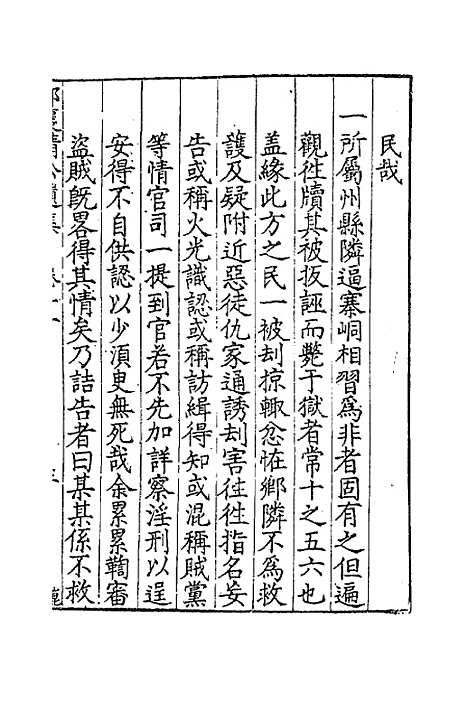 民哉
一所屬州縣隣逼寨峒相習爲非者固有之但遍
觀徃牘其被扳誣而斃于獄者常十之五六也
盖緣此方之民一被刦掠輙忿恠鄉隣不爲救
護及疑附近惡徒仇家通誘刦害徃徃指名妄
告或稱火光識認或稱訪緝得知或混稱賊黨
等情官司一提到官若不先加詳察淫刑以逞
安得不自供認以少湏臾無死哉余累累鞫審
盗賊旣畧得其情矣乃詰告者曰某某係不救